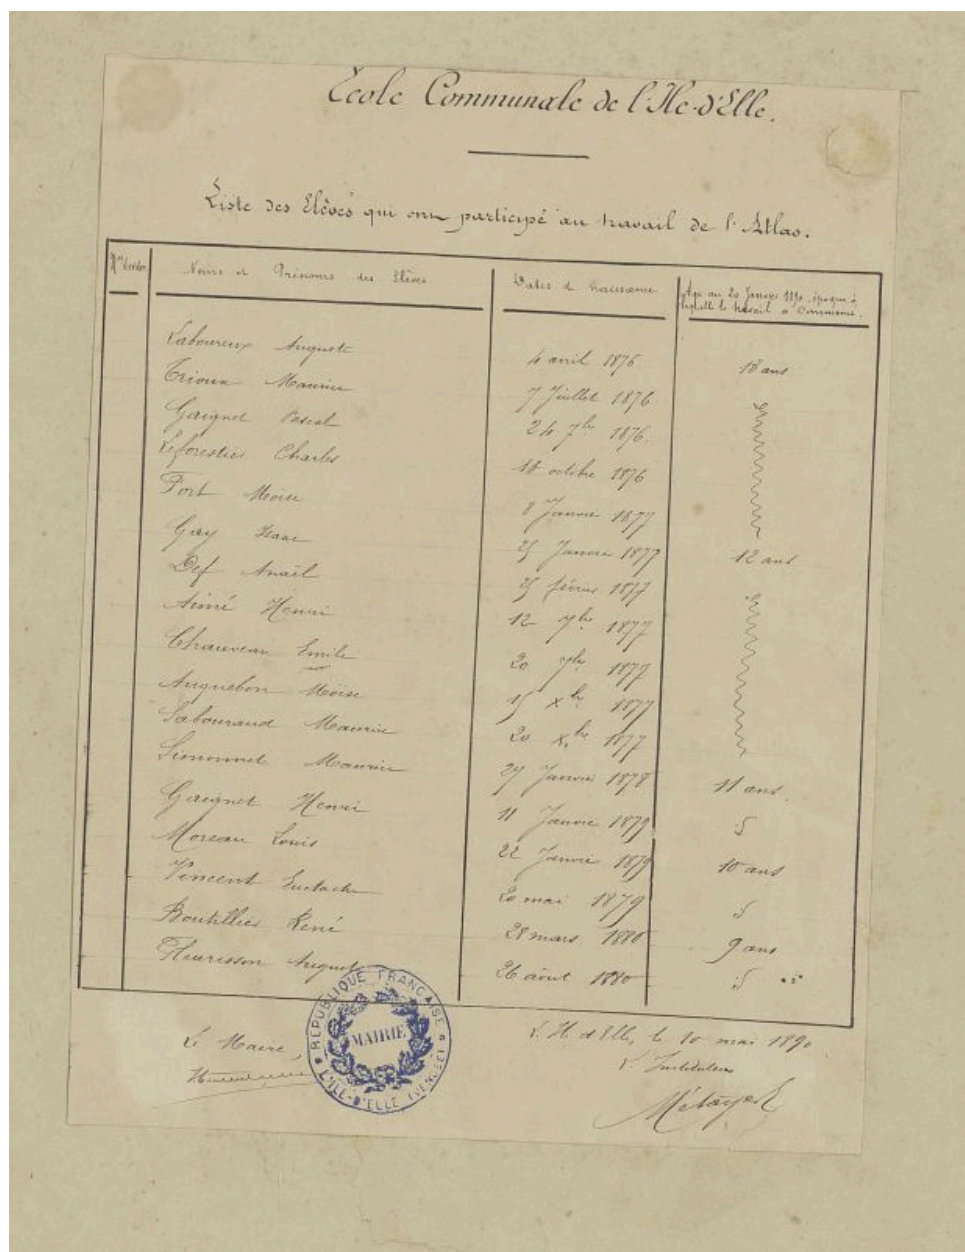 Ecole Communale de l'Ile-d'Elle.
Liste des Elèves qui ont participé au travail de l'Atlas.
Nos d'ordre Noms et Prénoms des Elèves Dates de naissance Age au 20 Janvier 1890, époque à
laquelle le travail a commencé.
Laboureux Auguste 4 avril 1876 13 ans
Trioux Maurice 7 Juillet 1876
Gaignet Pascal 24 7bre 1876.
Leforestier Charles 18 octobre 1876
Port Moïse 8 Janvier 1877
Gay Isaac 25 Janvier 1877 12 ans
Def Anaël 25 février 1877
Aimé Henri 12 7bre 1877
Chauveau Emile 20 7bre 1877
Auguebon Moïse 15 Xbre 1877
Sabouraud Maurice 20 Xbre 1877
Simonnet Maurice 27 Janvier 1878 11 ans.
Gaignet Henri 11 Janvier 1879
Moreau Louis 22 Janvier 1879 10 ans
Vincent Eustache 20 mai 1879
Boutillier René 28 mars 1880 9 ans
Fleurisson August 26 août 1880
Le Maire,
L'Ile d'Elle, le 10 mai 1890
L'Instituteur
Métayer
RÉPUBLIQUE FRANÇAISE
MAIRIE
L'ILE-D'ELLE (VENDÉE)